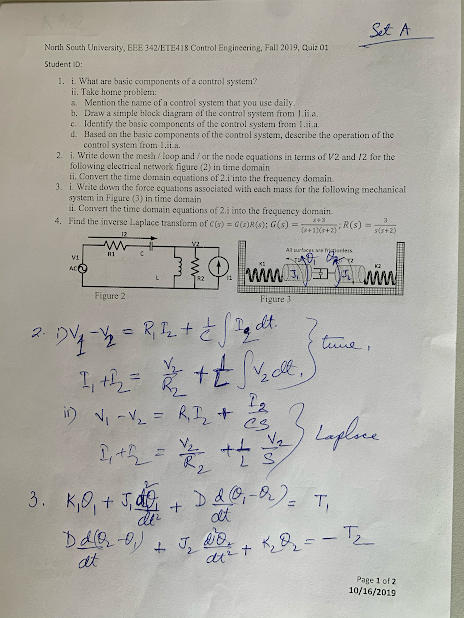 Set A
North South University, EEE 342/ETE418 Control Engineering, Fall 2019, Quiz 01
Student ID:
1. i. What are basic components of a control system?
ii. Take home problem:
a. Mention the name of a control system that you use daily.
b. Draw a simple block diagram of the control system from 1.ii.a.
c. Identify the basic components of the control system from 1.ii.a.
d. Based on the basic components of the control system, describe the operation of the
control system from 1.ii.a.
2. i. Write down the mesh / loop and / or the node equations in terms of V2 and I2 for the
following electrical network figure (2) in time domain
ii. Convert the time domain equations of 2.i into the frequency domain.
3. i. Write down the force equations associated with each mass for the following mechanical
system in Figure (3) in time domain
ii. Convert the time domain equations of 2.i into the frequency domain.
4. Find the inverse Laplace transform of C(s) = G(s)R(s); G(s) = (s+3)/((s+1)(s+2)); R(s) = 3/(s(s+2))
I2 V2 All surfaces are frictionless
V1 R1 C K1 θ1 θ2 K2
AC L R2 I1 J1 J2
Figure 2 Figure 3
2. i) V1 - V2 = R1 I2 + 1/C ∫ I2 dt.
I1 + I2 = V2/R2 + 1/L ∫ V2 dt. } time,
ii) V1 - V2 = R1 I2 + I2/CS
I1 + I2 = V2/R2 + 1/L V2/S } Laplace
3. K1θ1 + J1 d²θ1/dt² + D d(θ1-θ2)/dt = T1
D d(θ2-θ1)/dt + J2 d²θ2/dt² + K2θ2 = - T2
Page 1 of 2
10/16/2019